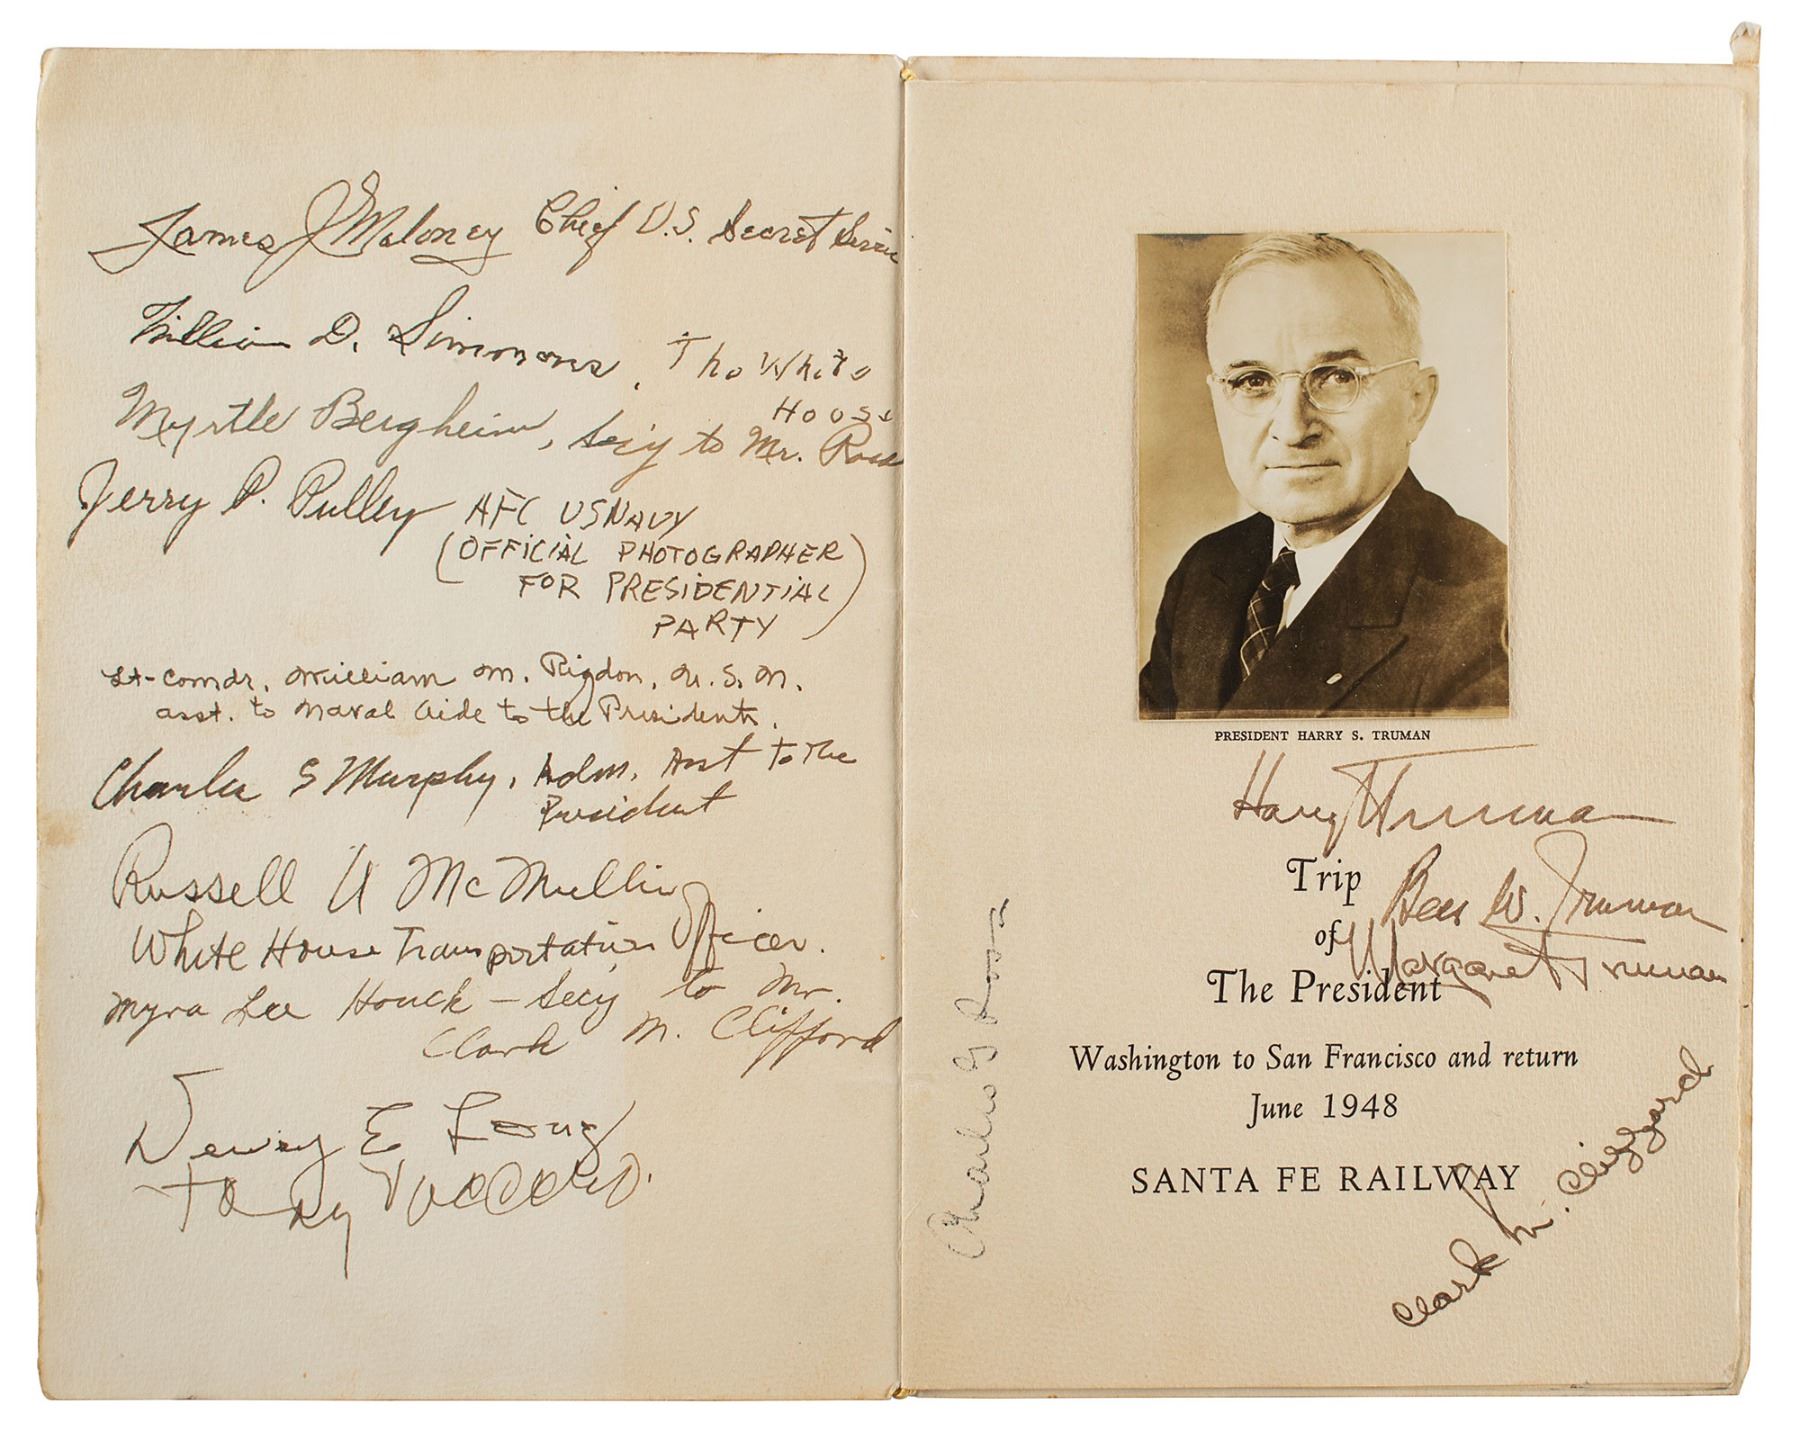 James J Maloney Chief U.S. Secret Service
William D. Simmons, The White
House
Myrtle Bergheim, Sec'y to Mr. Ross
Jerry P. Pulley AFC US NAVY
(OFFICIAL PHOTOGRAPHER
FOR PRESIDENTIAL
PARTY)
Lt-Comdr. William M. Rigdon, U.S.N.
asst. to Naval Aide to the President.
Charles S Murphy, Adm. Asst to the
President
Russell McMullin
White House Transportation Officer.
Myra Lee Houck - Secy to Mr.
Clark M. Clifford
Dewey E Long
Tony
Charles G Ross
PRESIDENT HARRY S. TRUMAN
Harry Truman
Trip
Bess W. Truman
of
Margaret Truman
The President
Washington to San Francisco and return
June 1948
SANTA FE RAILWAY
Clark M. Clifford